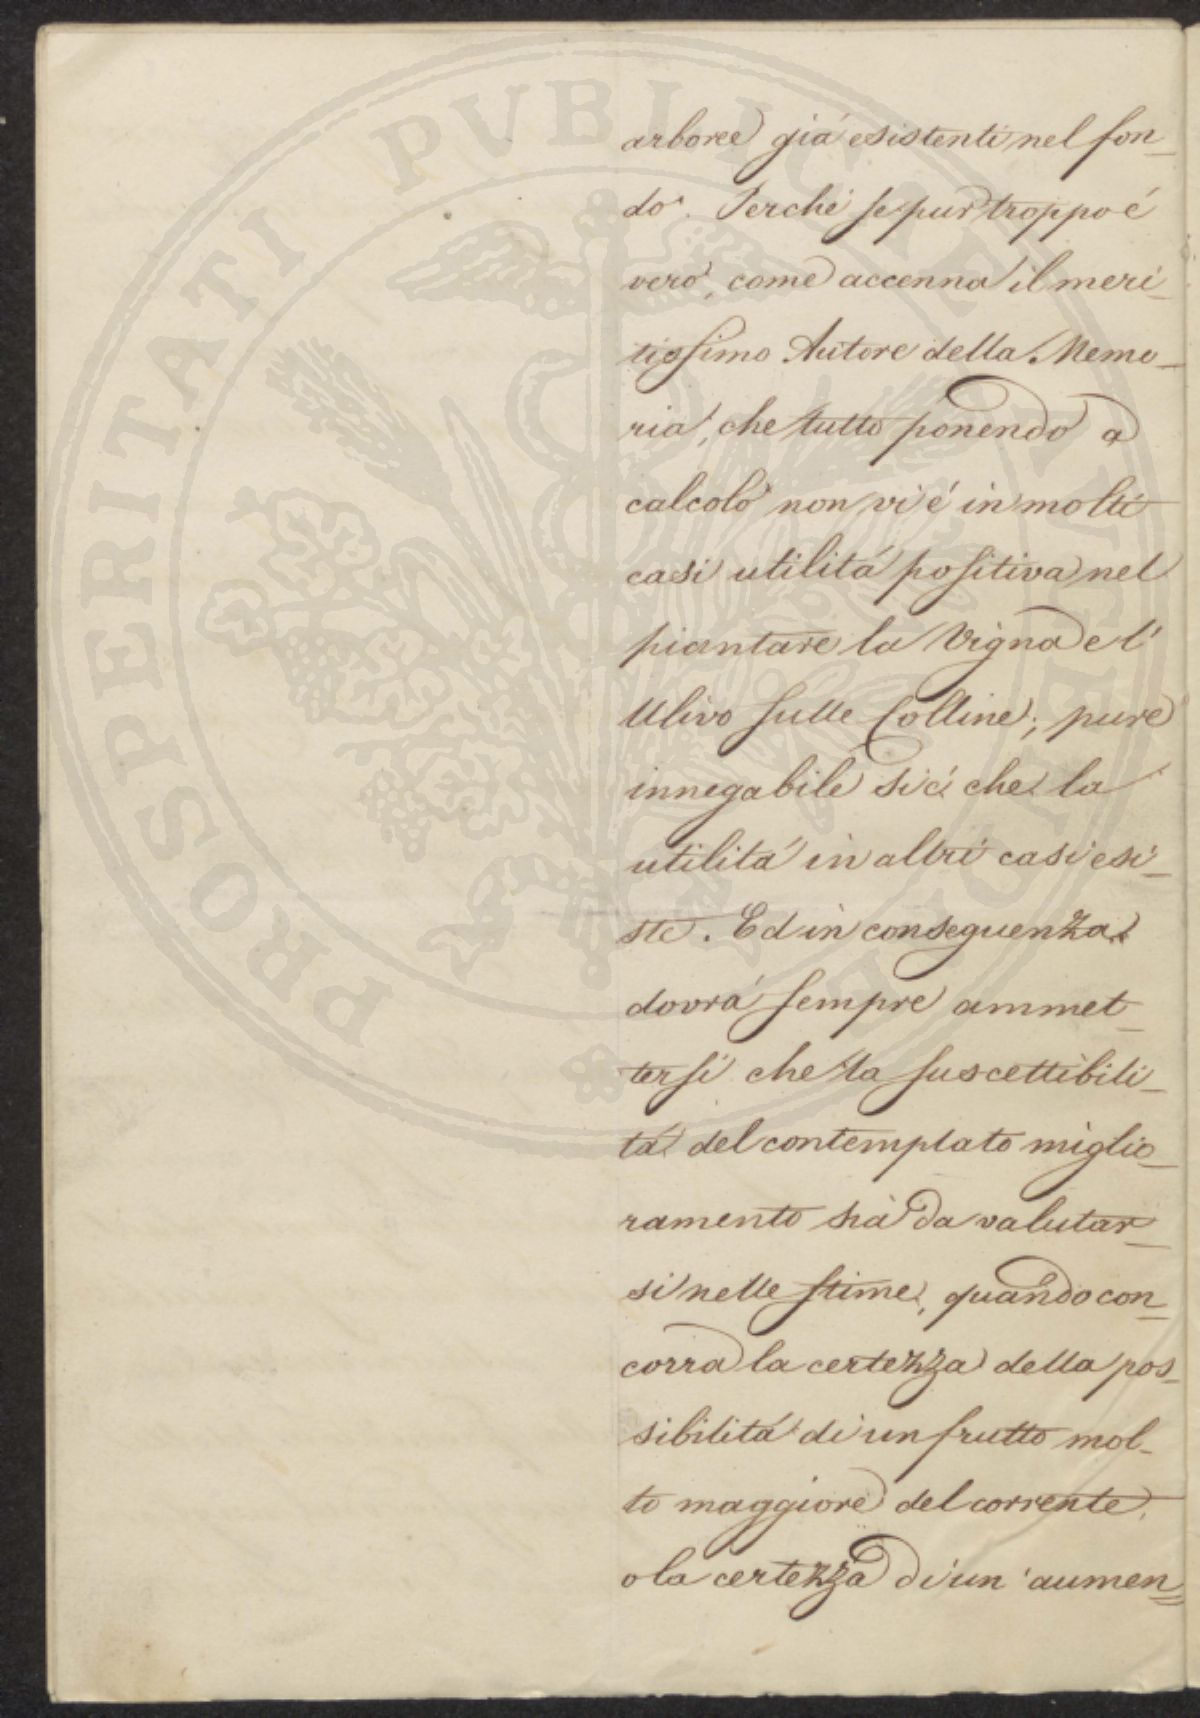 arboree già esistenti nel fon_
do. Perchè se pur troppo é
vero, come accenna il meri_
tissimo Autore della Memo_
ria, che tutto ponendo a
calcolo non vi é in molti
casi utilitá positiva nel
piantare la Vigna e l'
Ulivo sulle Colline; pure
innegabile si é che la
utilitá in altri casi esi_
ste. Ed in conseguenza
dovrá sempre ammet_
tersi che la suscettibili_
tá del contemplato miglio_
ramento sia da valutar_
si nelle stime, quando con_
corra la certezza della pos_
sibilitá di un frutto mol_
to maggiore del corrente,
o la certezza di un' aumen=
PROSPERITATI PUBLICAE AUGENDAE